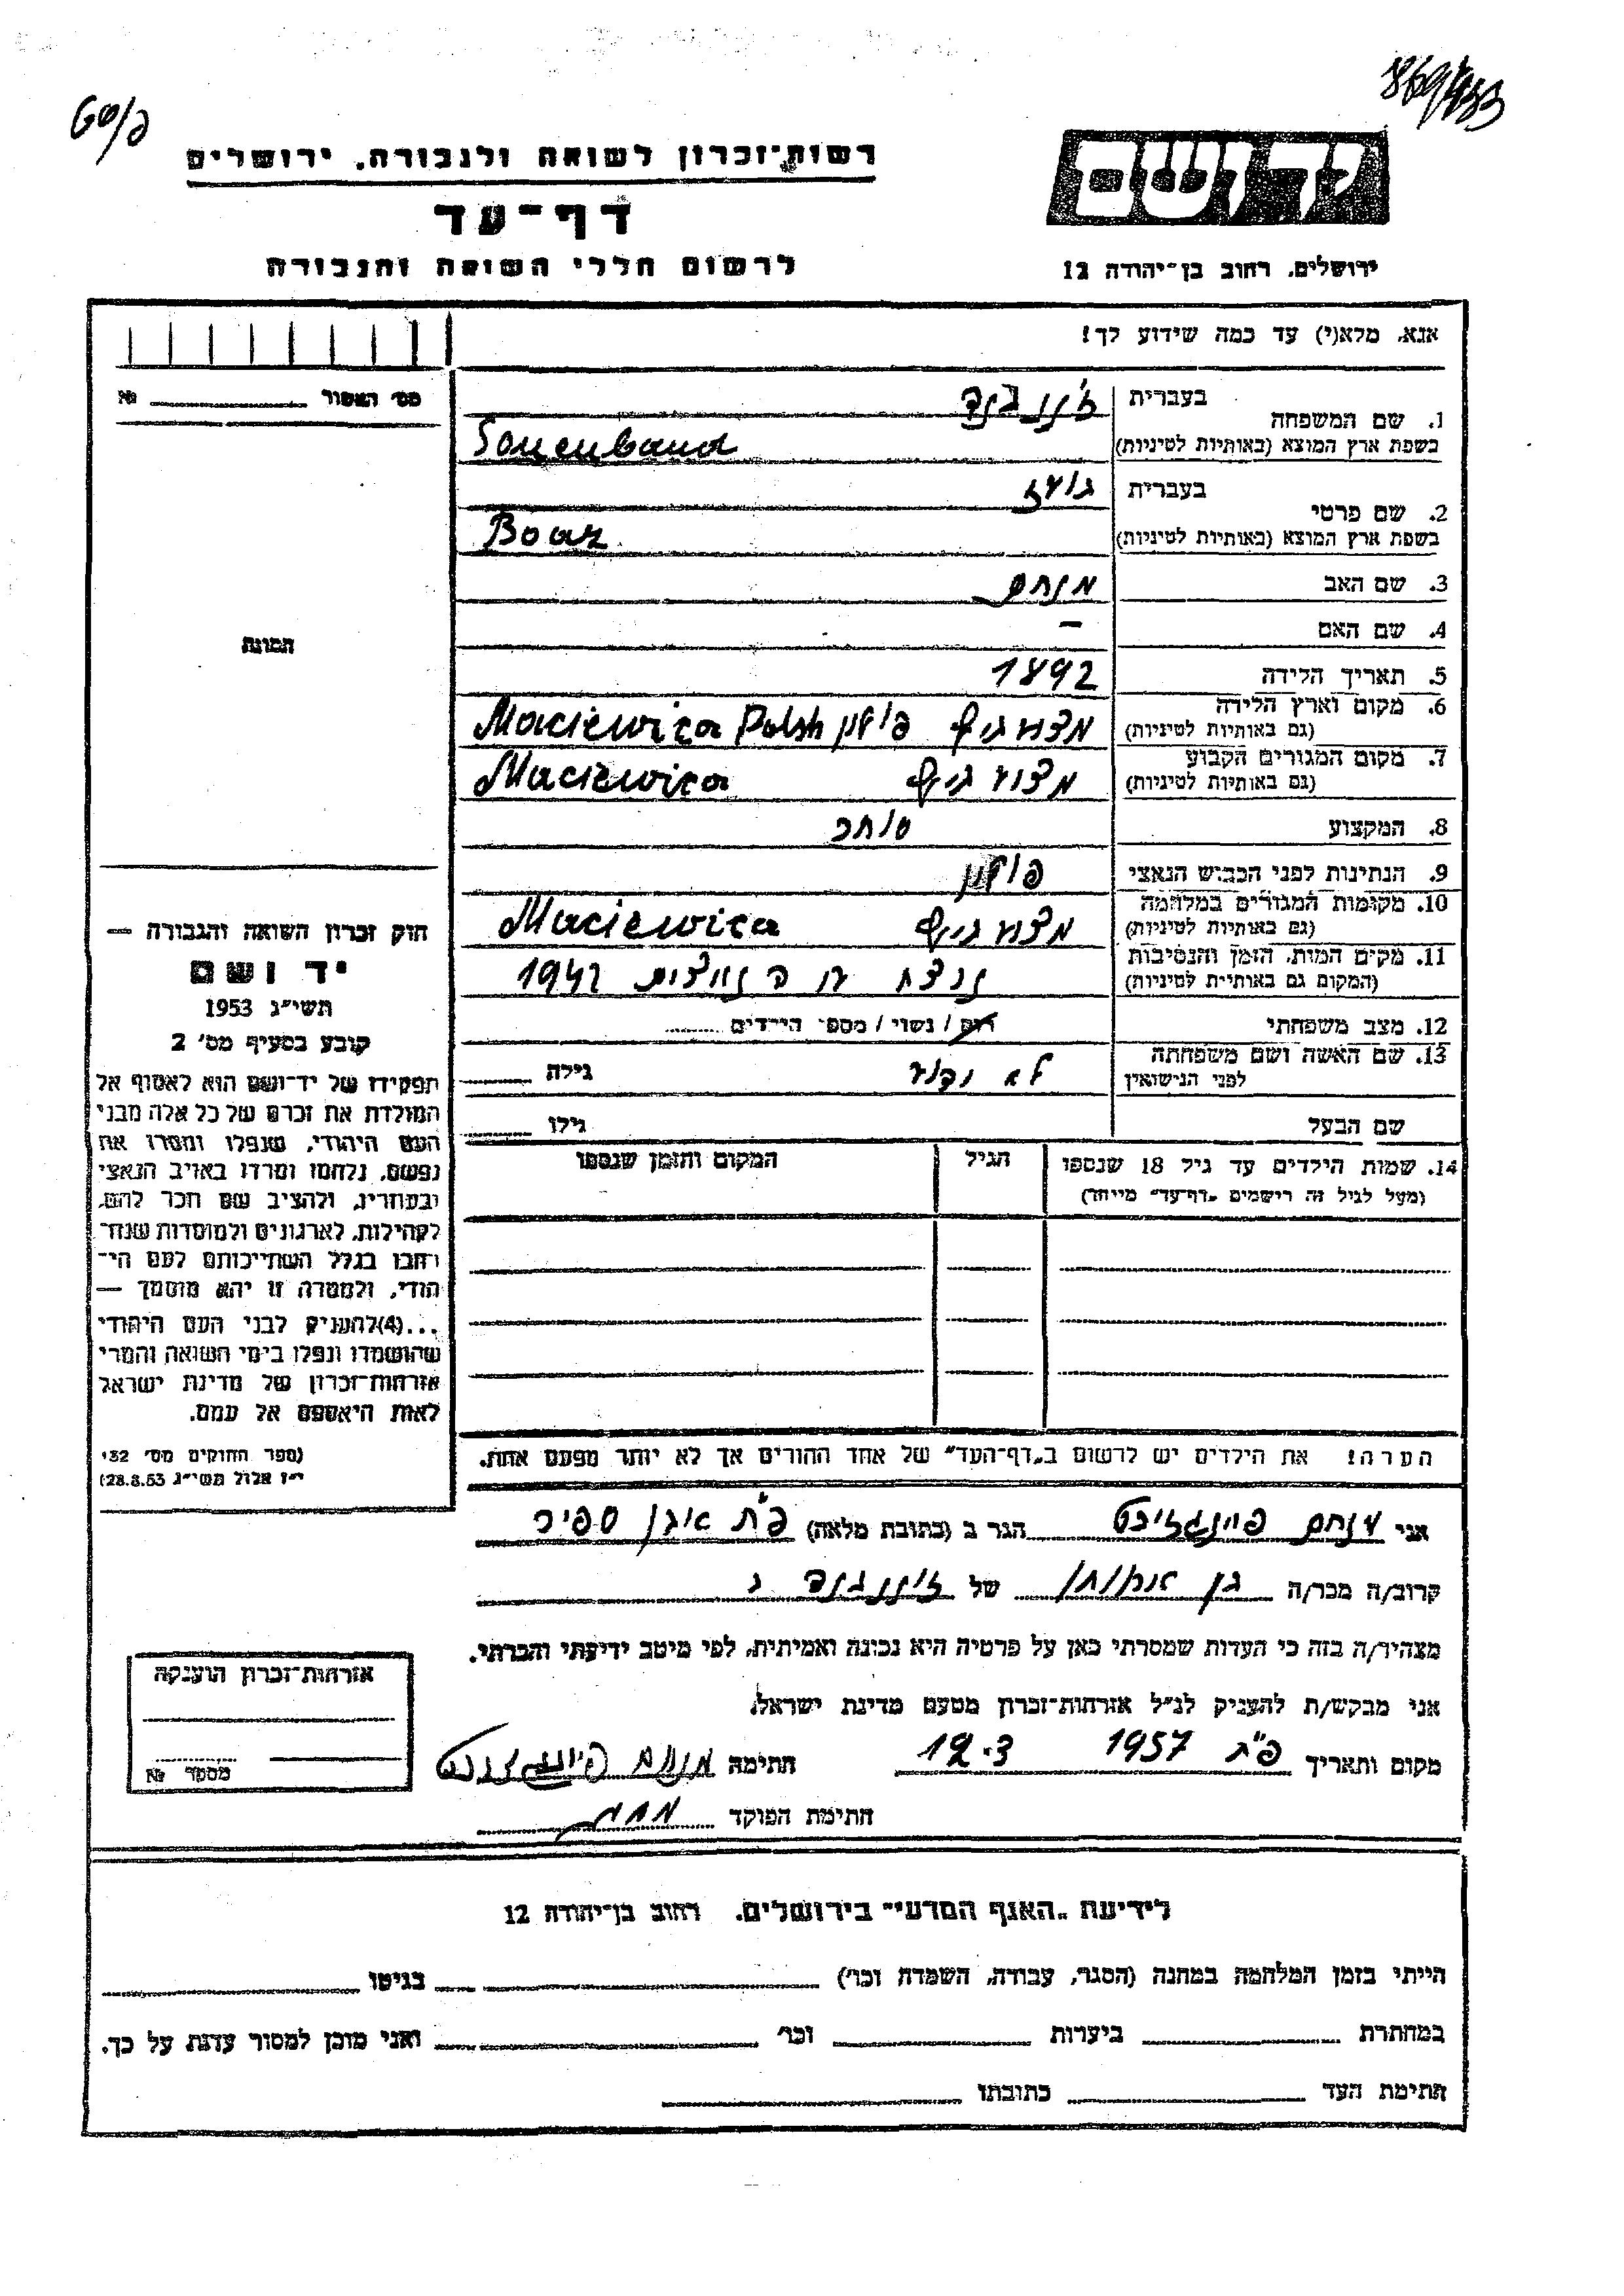 869/433
רשות־זכרון לשואה ולגבורה, ירושלים
דף־עד
לרשום חללי השואה והגבורה
יד ושם
ירושלים, רחוב בן־יהודה 12
אנא, מלא(י) עד כמה שידוע לך!
מס׳ האשור №
1. שם המשפחה
בעברית
בשפת ארץ המוצא (באותיות לטיניות) Sonenband
2. שם פרטי
בעברית בועז
בשפת ארץ המוצא (באותיות לטיניות) Boaz
3. שם האב מנחם
4. שם האם –
5. תאריך הלידה 1892
6. מקום וארץ הלידה
(גם באותיות לטיניות) פולין Maciewica Polsh
7. מקום המגורים הקבוע
(גם באותיות לטיניות) Maciewica
8. המקצוע סוחר
9. הנתינות לפני הכבוש הנאצי פולין
10. מקומות המגורים במלחמה
(גם באותיות לטיניות) Maciewica
11. מקום המות, הזמן והנסיבות
(המקום גם באותיות לטיניות) 1942
12. מצב משפחתי רווק / נשוי / מספר הילדים
13. שם האשה ושם משפחתה
לפני הנישואין לא ידוע גילה
שם הבעל גילו
14. שמות הילדים עד גיל 18 שנספו
(מעל לגיל זה רישמים „דף־עד״ מיוחד)
הגיל
המקום והזמן שנספו
הערה! את הילדים יש לרשום ב„דף־העד״ של אחד ההורים אך לא יותר מפעם אחת.
התמונה
חוק זכרון השואה והגבורה —
יד ושם
תשי״ג 1953
קובע בסעיף מס׳ 2
תפקידו של יד־ושם הוא לאסוף אל
המולדת את זכרם של כל אלה מבני
העם היהודי, שנפלו ומסרו את
נפשם, נלחמו ומרדו באויב הנאצי
ובעוזריו, ולהציב שם וזכר להם,
לקהילות, לארגונים ולמוסדות שנח־
רבו בגלל השתייכותם לעם הי־
הודי, ולמטרה זו יהא מוסמך —
...(4) להעניק לבני העם היהודי
שהושמדו ונפלו בימי השואה והמרי
אזרחות־זכרון של מדינת ישראל
לאות היאספם אל עמם.
(ספר החוקים מס׳ 132
י״ז אלול תשי״ג 28.8.53)
אני מנחם הגר ב (כתובת מלאה) פ״ת אבן ספיר
קרוב/ה מכר/ה בן אחות של
מצהיר/ה בזה כי העדות שמסרתי כאן על פרטיה היא נכונה ואמיתית, לפי מיטב ידיעתי והכרתי.
אני מבקש/ת להעניק לנ״ל אזרחות־זכרון מטעם מדינת ישראל.
מקום ותאריך פ״ת 1957 12.3 חתימה מנחם
חתימת הפוקד
אזרחות־זכרון הוענקה
מספר №
לידיעת „האגף המדעי״ בירושלים, רחוב בן־יהודה 12
הייתי בזמן המלחמה במחנה (הסגר, עבודה, השמדה וכו׳) בגיטו
במחתרת ביערות וכו׳ ואני מוכן למסור עדות על כך.
חתימת העד כתובתו